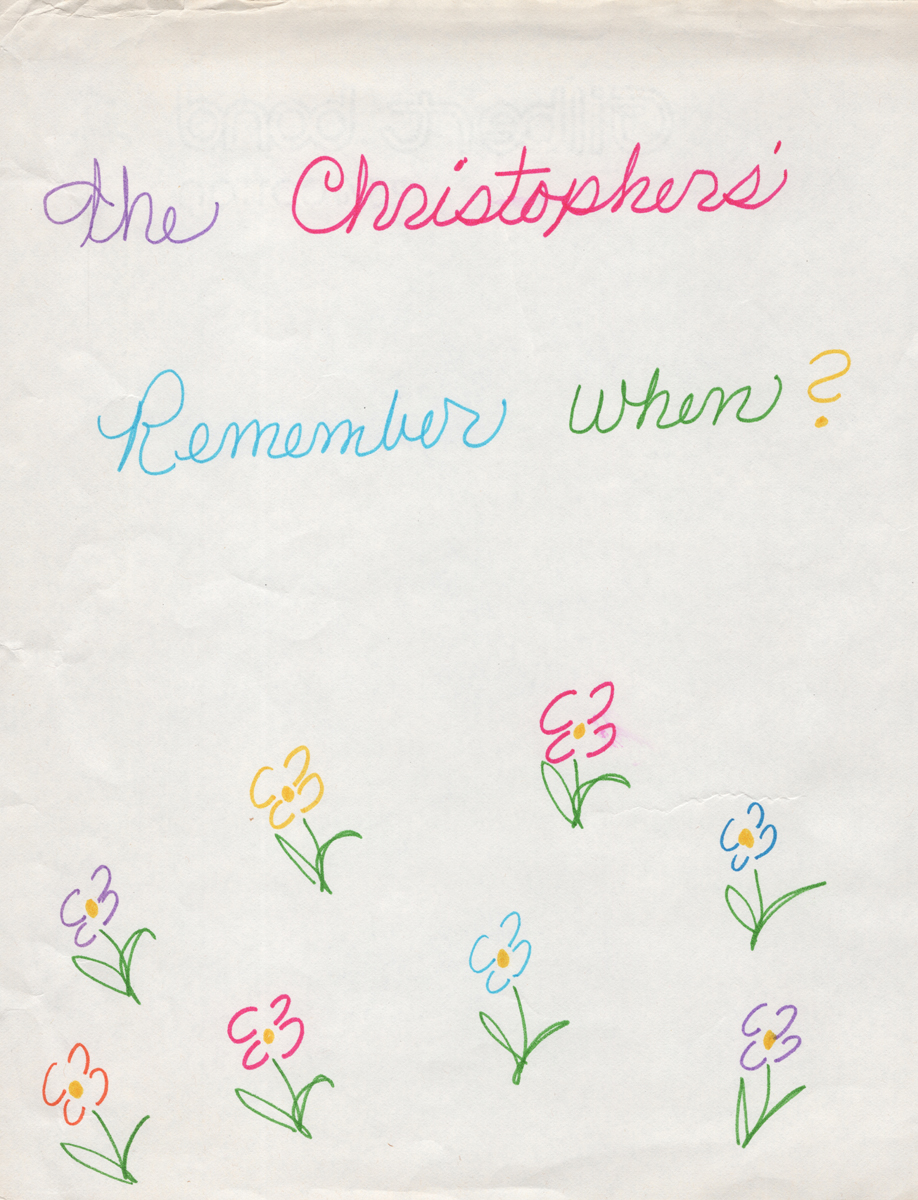 the Christophers'
Remember when?